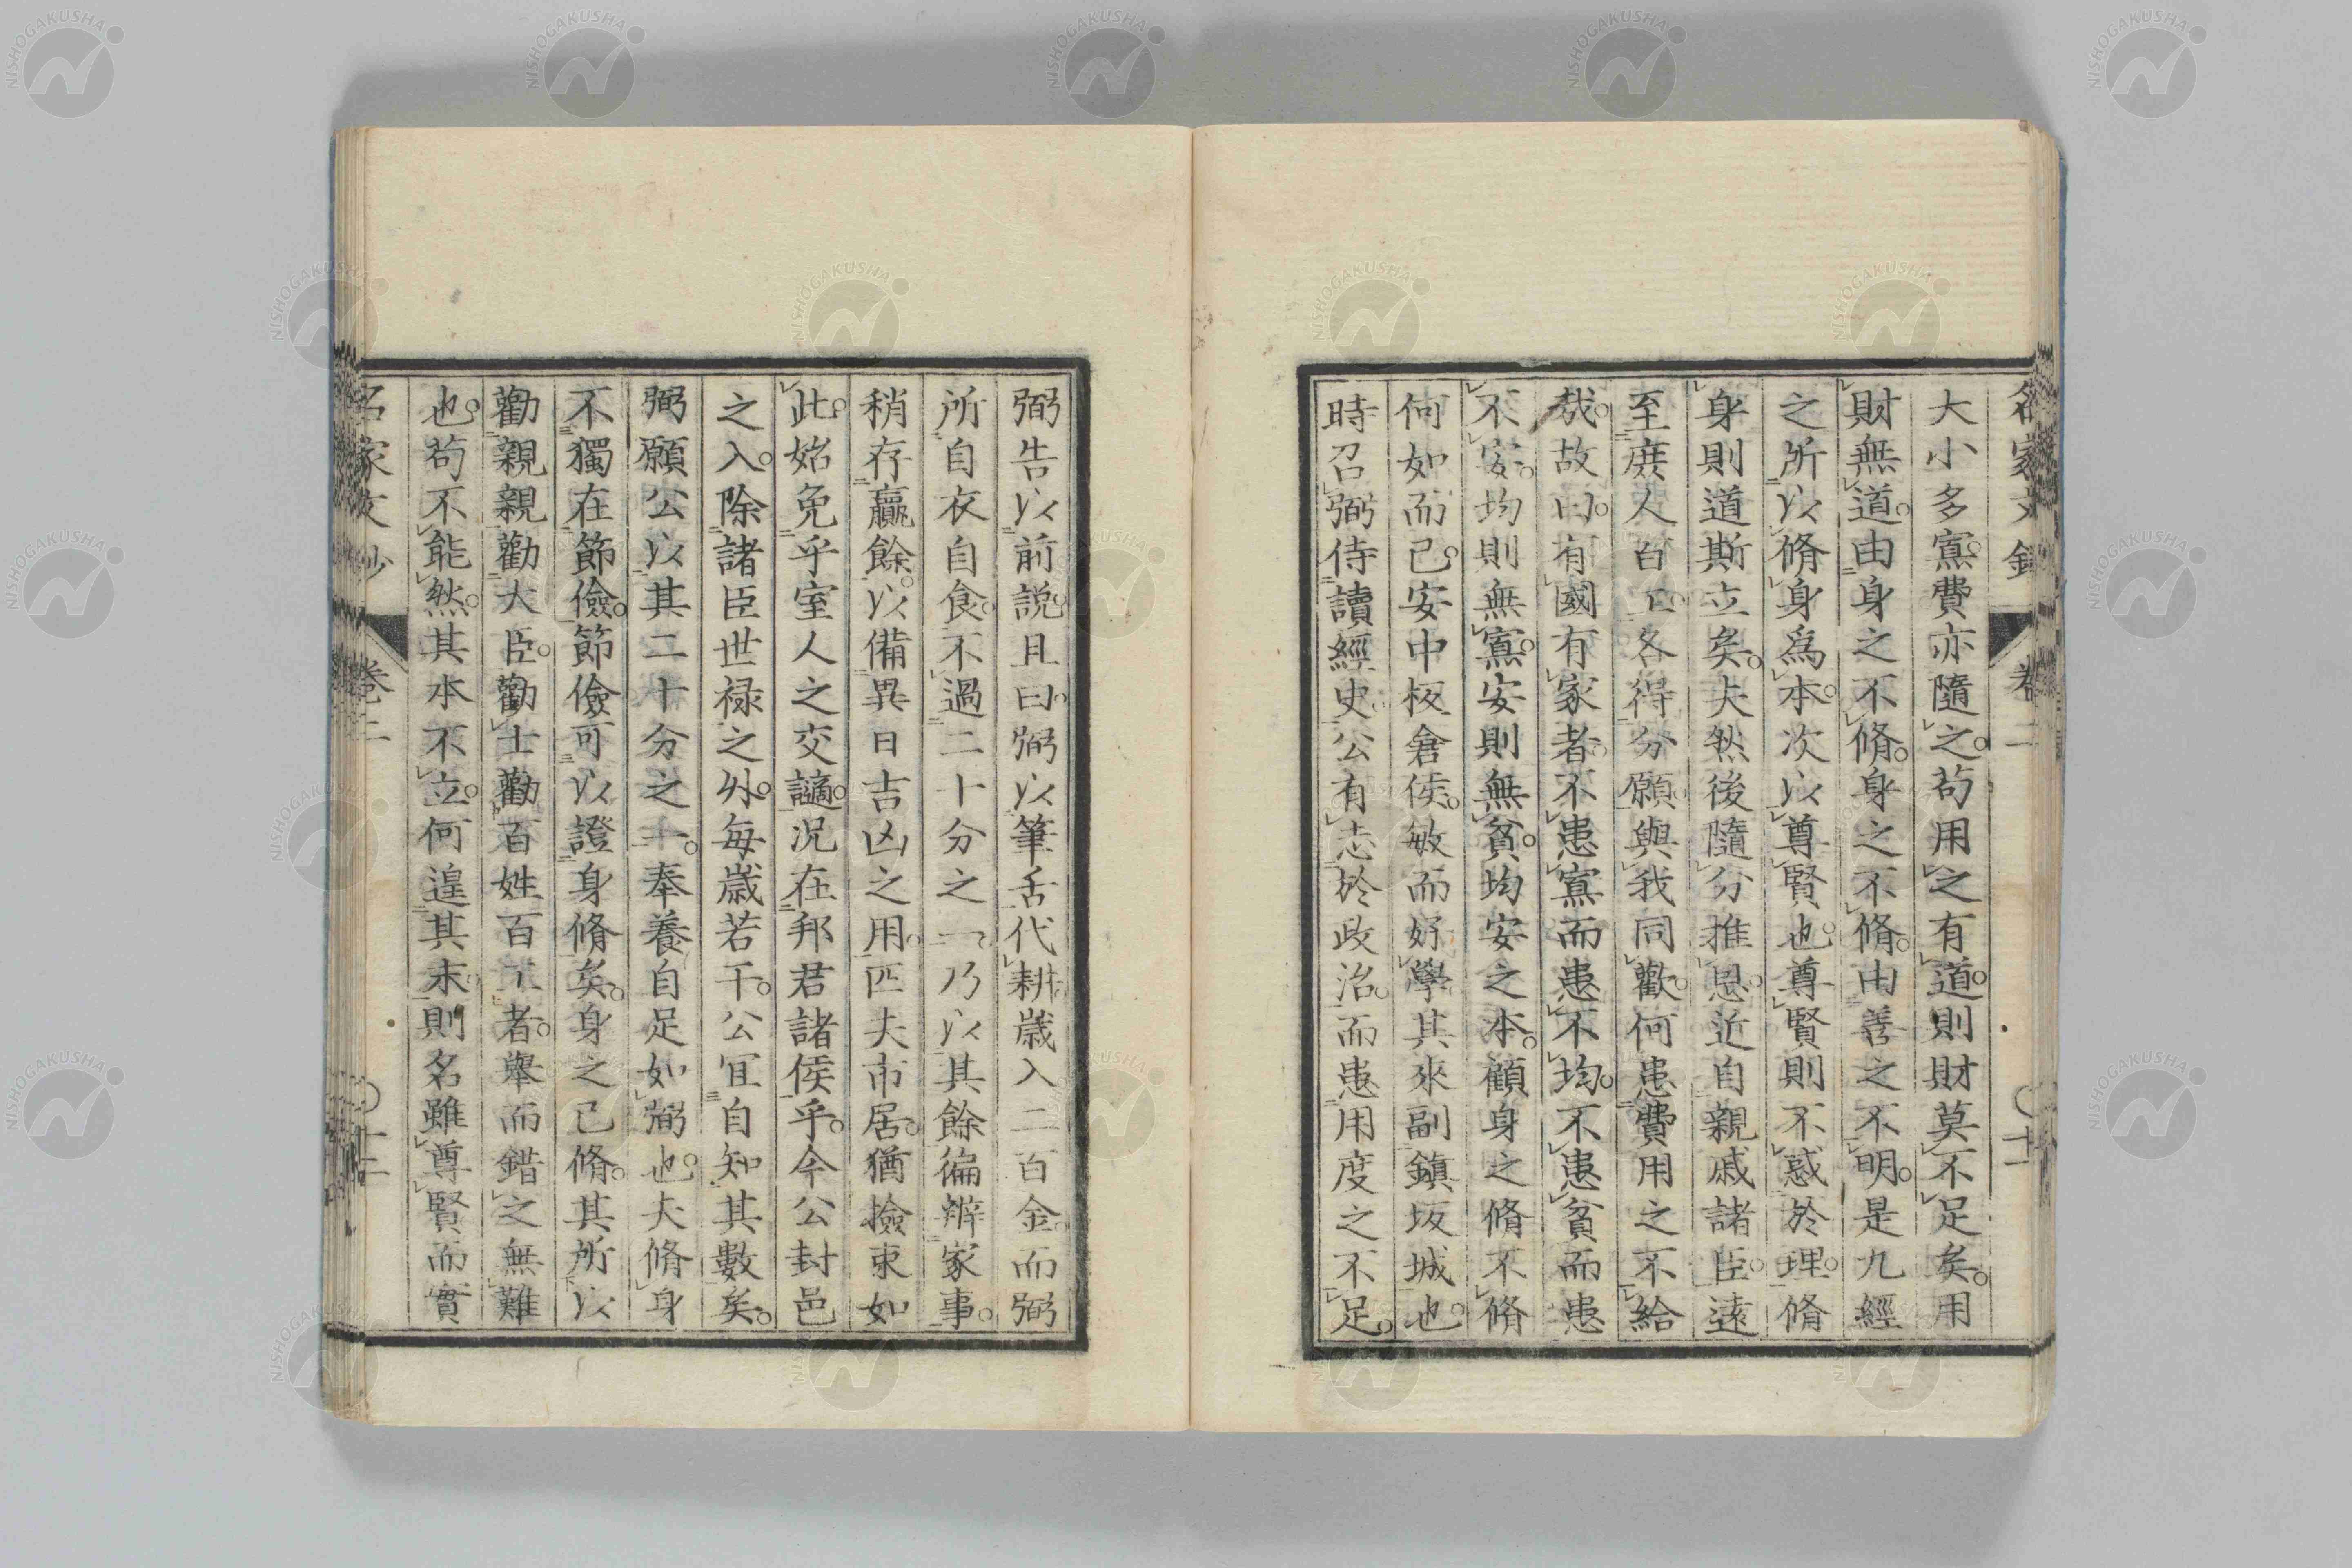 名家文鈔 卷二 ○十一
大小多寡費亦隨之。苟用之有道。則財莫不足矣。用
財無道。由身之不脩。身之不脩。由善之不明。是九經
之所以脩身爲本。次以尊賢也。尊賢則不惑於理。脩
身則道斯立矣。夫然後隨分推恩。近自親戚諸臣。遠
至庶人百工。各得分願。與我同歡。何患費用之不給
哉。故曰。有國有家者。不患寡而患不均。不患貧而患
不安。均則無寡。安則無貧。均安之本。顧身之脩不脩
何如而已。安中板倉侯。敏而好學。其來副鎮坂城也。
時召弼侍讀經史。公有志於政治。而患用度之不足。
弼告以前說。且曰。弼以筆舌代耕。歲入二百金。而弼
所自衣自食。不過二十分之一。乃以其餘徧辨家事。
稍存贏餘。以備異日吉凶之用。匹夫市居。猶撿束如
此。始免乎室人之交讁。况在邦君諸侯乎。今公封邑
之入。除諸臣世禄之外。每歲若干。公宜自知其數矣。
弼願公以其二十分之一。奉養自足如弼也。夫脩身
不獨在節儉。節儉可以證身脩矣。身之已脩。其所以
勸親親勸大臣。勸士勸百姓百工者。舉而錯之無難
也。苟不能然。其本不立。何遑其末。則名雖尊賢而實
名家文鈔 卷二 ○十二
NISHOGAKUSHA